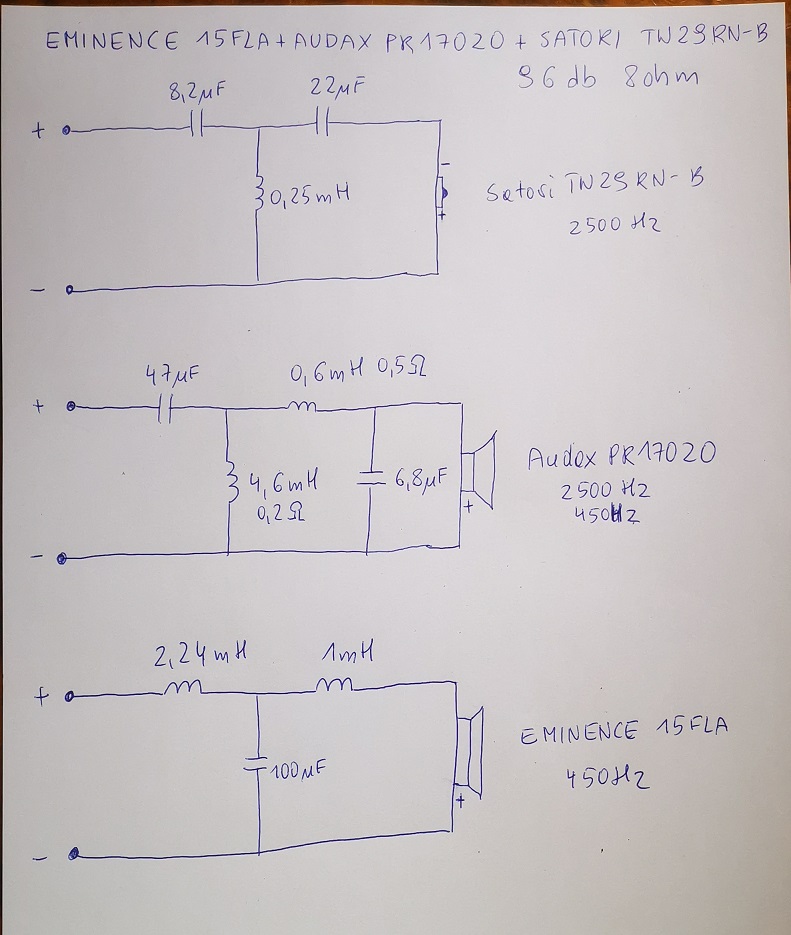 EMINENCE 15FLA + AUDAX PR17020 + SATORI TW29RN-B
96 db 8ohm
8,2µF 22µF
+
0,25mH
-
+
Satori TW29RN-B
2500 Hz
-
47µF 0,6mH 0,5Ω
+
4,6mH
0,2Ω
6,8µF
+
Audax PR17020
2500 Hz
450Hz
-
2,24mH 1mH
+
100µF
+
EMINENCE 15FLA
450Hz
-